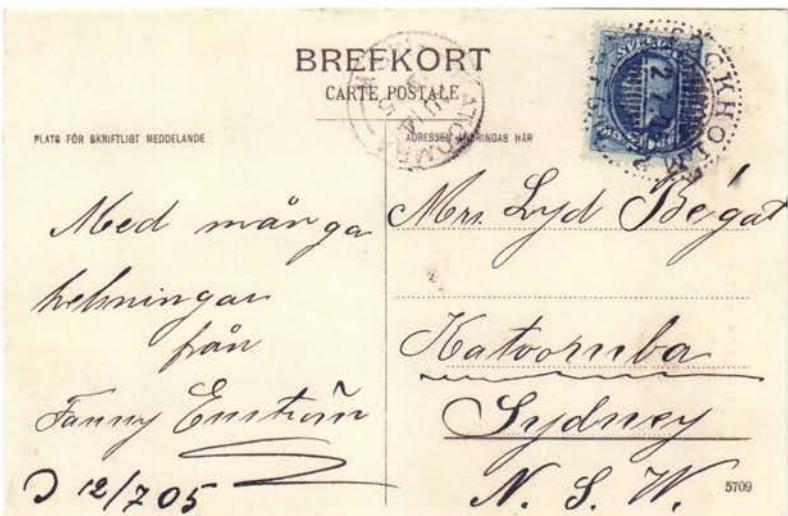 BREFKORT
CARTE POSTALE
PLATS FÖR SKRIFTLIGT MEDDELANDE
ADRESSEN ANBRINGAS HÄR
SVERIGE
STOCKHOLM
Med många
helsningar
från
Fanny Enström
D 12/7 05
Mrs. Lyd Bégat
Katoomba
Sydney
N. S. W.
5709